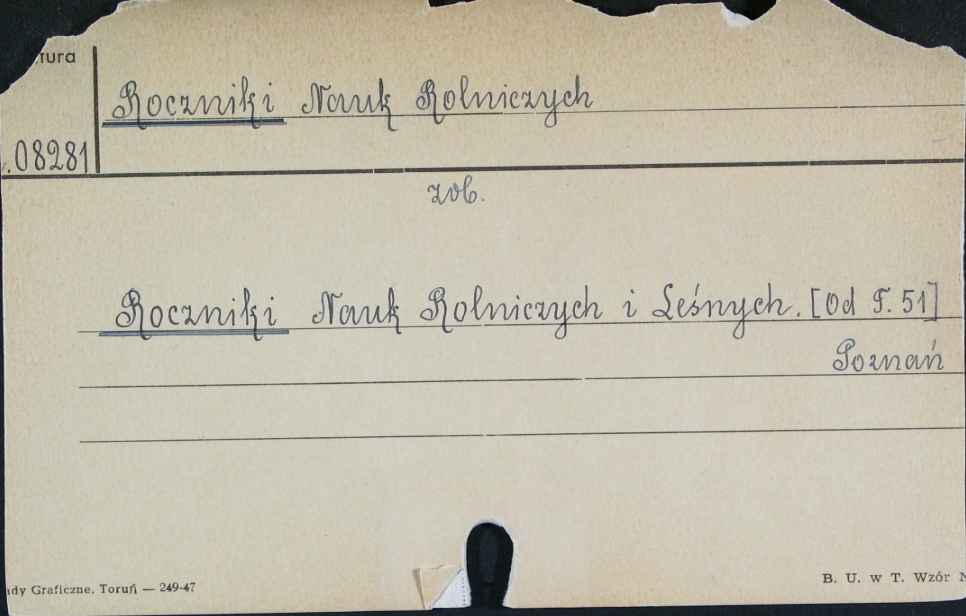 tura
Roczniki Nauk Rolniczych
.08281
zob.
Roczniki Nauk Rolniczych i Leśnych. [Od T. 51]
Poznań
ady Graficzne. Toruń — 249-47
B. U. w T. Wzór N